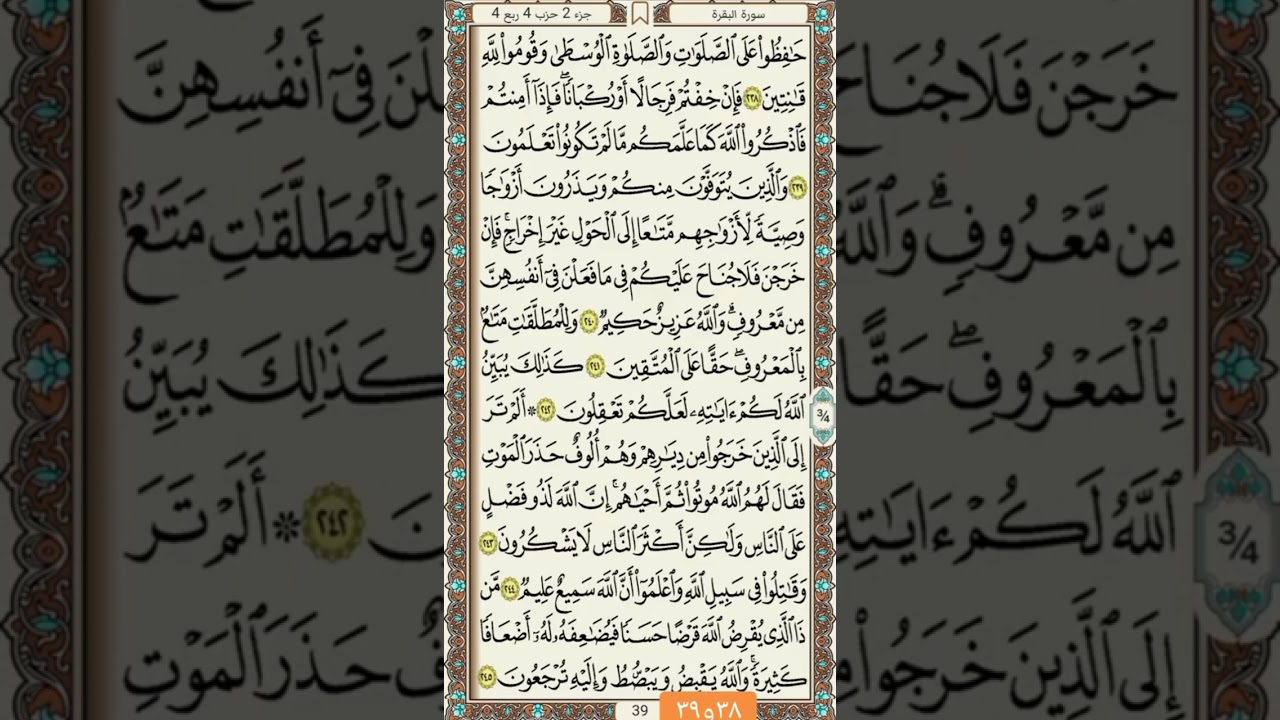 سورة البقرة
جزء 2 حزب 4 ربع 4
حَـٰفِظُوا۟ عَلَى ٱلصَّلَوَٰتِ وَٱلصَّلَوٰةِ ٱلْوُسْطَىٰ وَقُومُوا۟ لِلَّهِ
قَـٰنِتِينَ ٢٣٨ فَإِنْ خِفْتُمْ فَرِجَالًا أَوْ رُكْبَانًا ۖ فَإِذَآ أَمِنتُمْ
فَٱذْكُرُوا۟ ٱللَّهَ كَمَا عَلَّمَكُم مَّا لَمْ تَكُونُوا۟ تَعْلَمُونَ
٢٣٩ وَٱلَّذِينَ يُتَوَفَّوْنَ مِنكُمْ وَيَذَرُونَ أَزْوَٰجًا
وَصِيَّةً لِّأَزْوَٰجِهِم مَّتَـٰعًا إِلَى ٱلْحَوْلِ غَيْرَ إِخْرَاجٍ ۚ فَإِنْ
خَرَجْنَ فَلَا جُنَاحَ عَلَيْكُمْ فِى مَا فَعَلْنَ فِىٓ أَنفُسِهِنَّ
مِن مَّعْرُوفٍ ۗ وَٱللَّهُ عَزِيزٌ حَكِيمٌ ٢٤٠ وَلِلْمُطَلَّقَـٰتِ مَتَـٰعٌۢ
بِٱلْمَعْرُوفِ ۖ حَقًّا عَلَى ٱلْمُتَّقِينَ ٢٤١ كَذَٰلِكَ يُبَيِّنُ
ٱللَّهُ لَكُمْ ءَايَـٰتِهِۦ لَعَلَّكُمْ تَعْقِلُونَ ٢٤٢ * أَلَمْ تَرَ
إِلَى ٱلَّذِينَ خَرَجُوا۟ مِن دِيَـٰرِهِمْ وَهُمْ أُلُوفٌ حَذَرَ ٱلْمَوْتِ
فَقَالَ لَهُمُ ٱللَّهُ مُوتُوا۟ ثُمَّ أَحْيَـٰهُمْ ۚ إِنَّ ٱللَّهَ لَذُو فَضْلٍ
عَلَى ٱلنَّاسِ وَلَـٰكِنَّ أَكْثَرَ ٱلنَّاسِ لَا يَشْكُرُونَ ٢٤٣
وَقَـٰتِلُوا۟ فِى سَبِيلِ ٱللَّهِ وَٱعْلَمُوٓا۟ أَنَّ ٱللَّهَ سَمِيعٌ عَلِيمٌ ٢٤٤ مَّن
ذَا ٱلَّذِى يُقْرِضُ ٱللَّهَ قَرْضًا حَسَنًا فَيُضَـٰعِفَهُۥ لَهُۥٓ أَضْعَافًا
كَثِيرَةً ۚ وَٱللَّهُ يَقْبِضُ وَيَبْصُۜطُ وَإِلَيْهِ تُرْجَعُونَ ٢٤٥
3/4
39
٣٨ و ٣٩
خَرَجْنَ فَلَا جُنَاحَ
لْنَ فِىٓ أَنفُسِهِنَّ
مِن مَّعْرُوفٍ ۗ وَٱللَّهُ
وَلِلْمُطَلَّقَـٰتِ مَتَـٰعٌۢ
بِٱلْمَعْرُوفِ ۖ حَقًّا
كَذَٰلِكَ يُبَيِّنُ
ٱللَّهُ لَكُمْ ءَايَـٰتِهِ
نَ ٢٤٢ * أَلَمْ تَرَ
إِلَى ٱلَّذِينَ خَرَجُوا۟
فٌ حَذَرَ ٱلْمَوْتِ
3/4